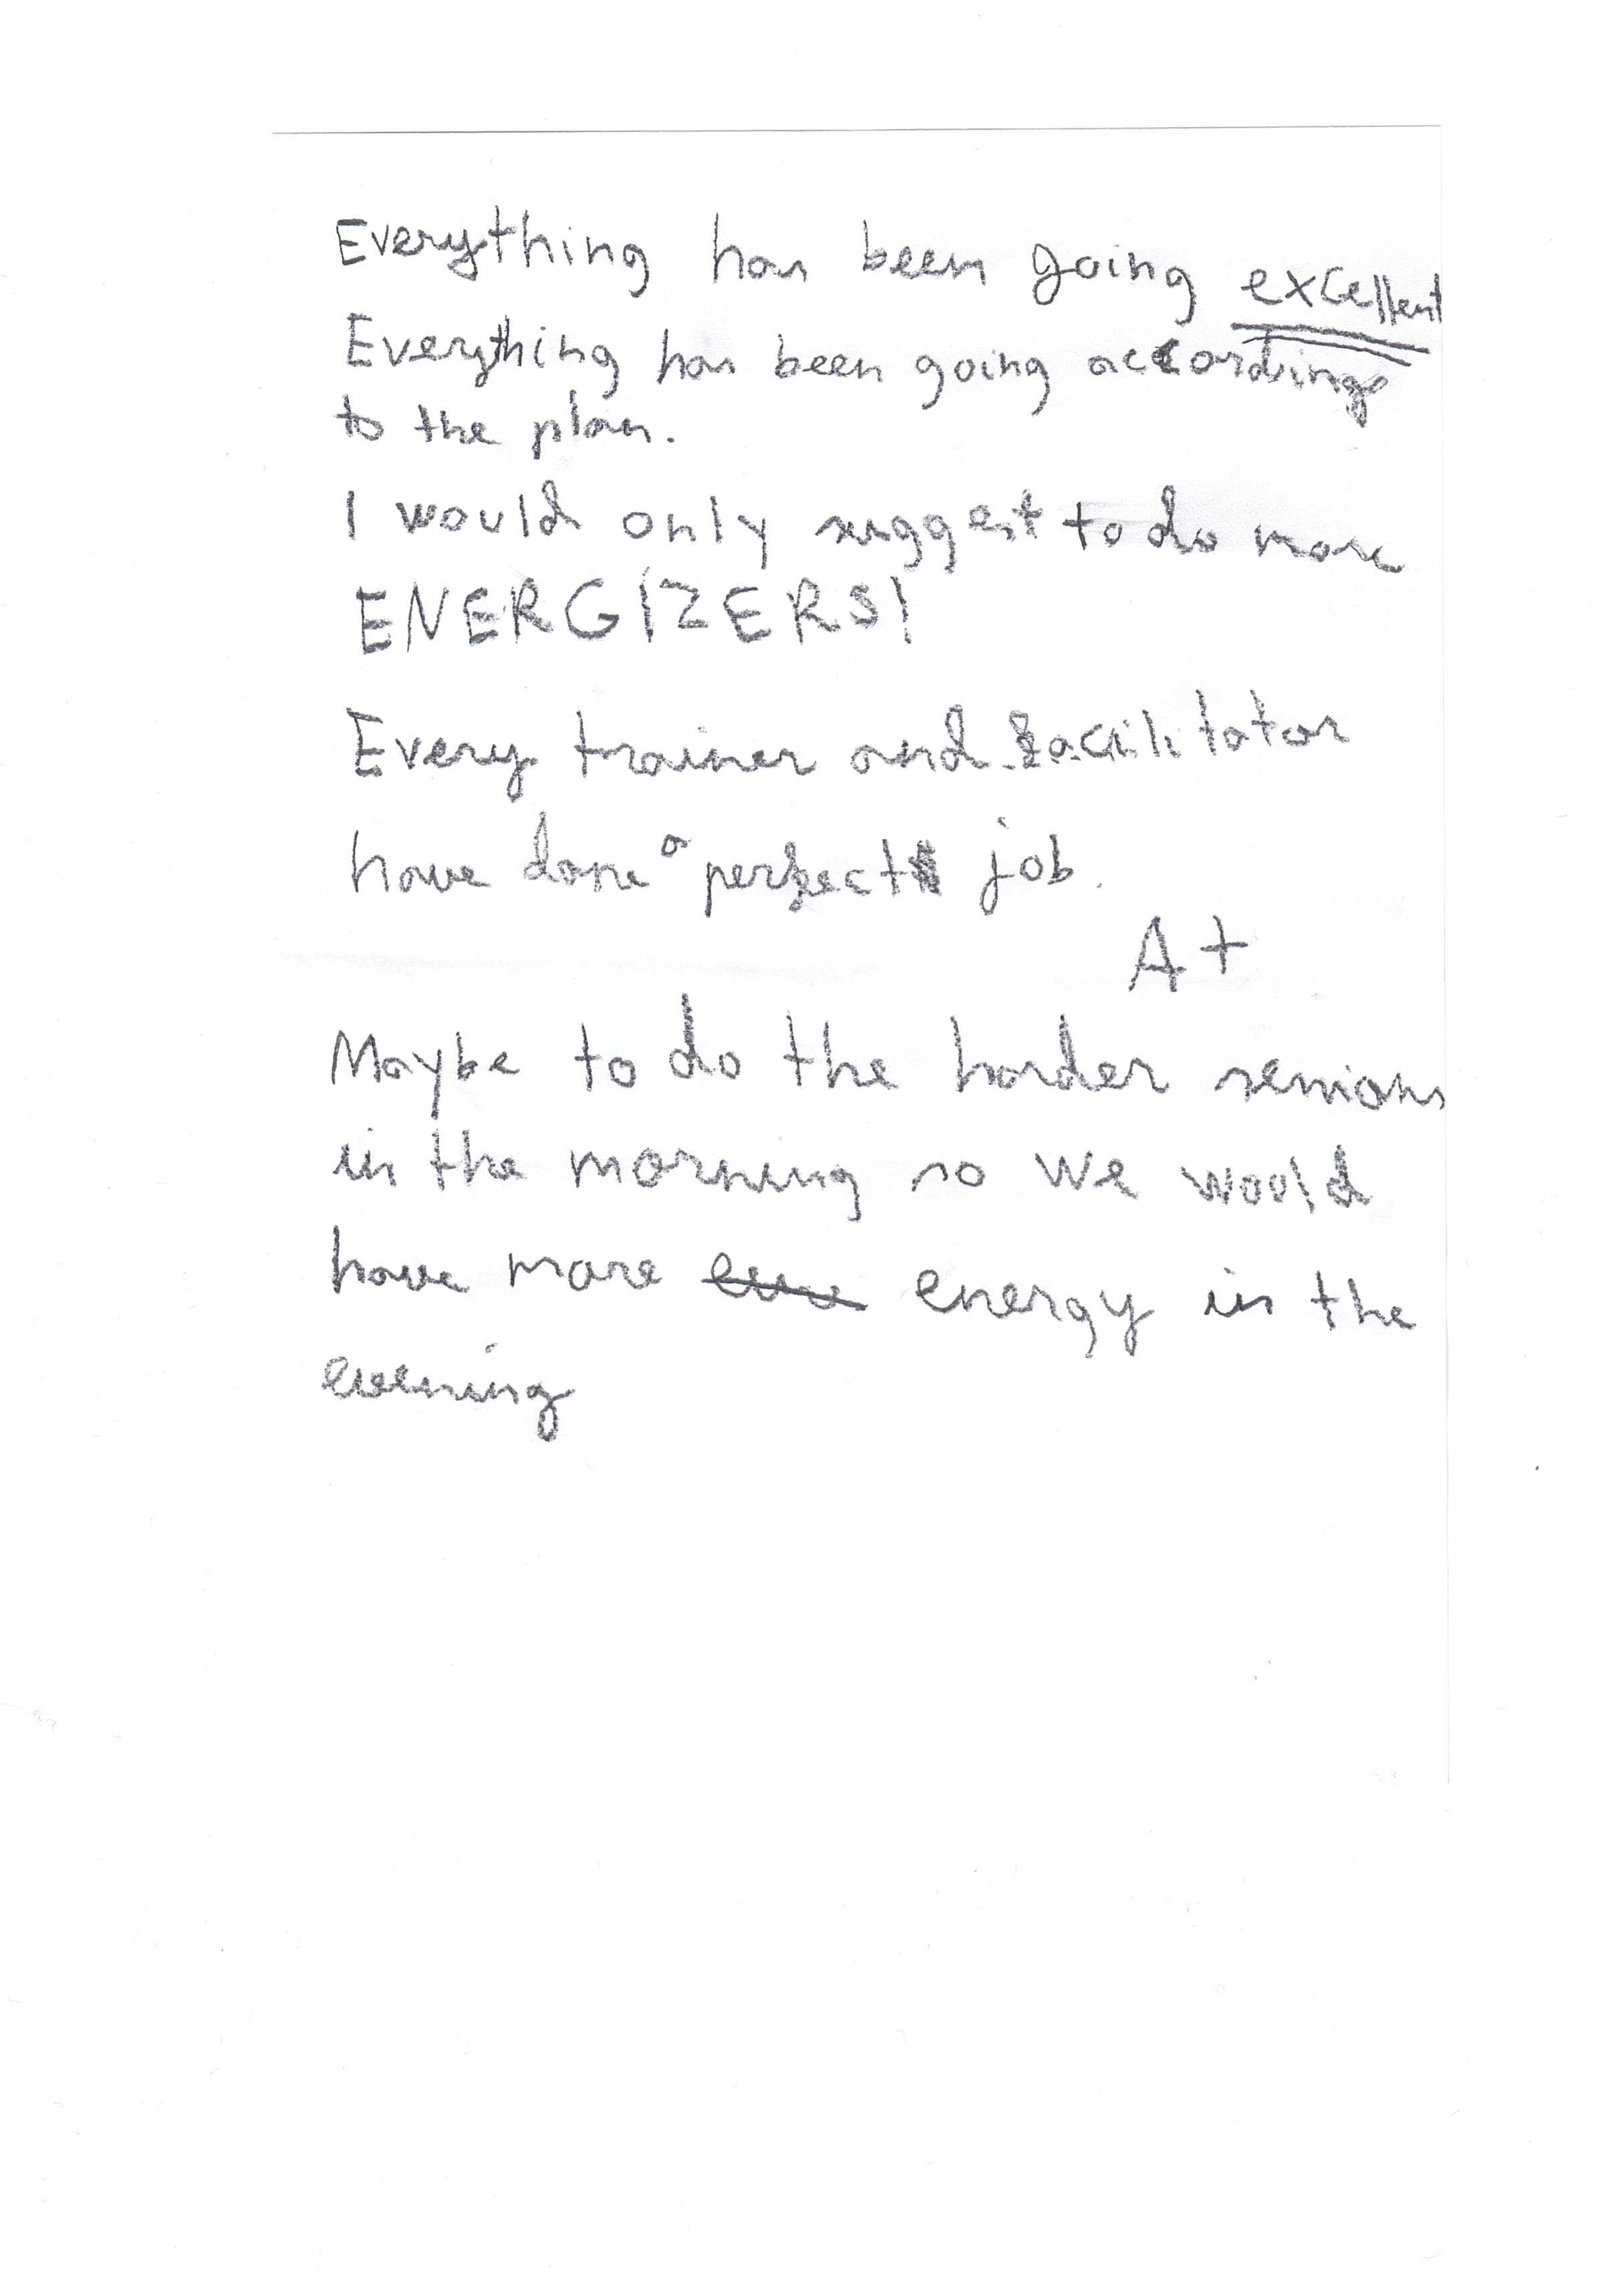 Everything has been going excellent
Everything has been going according
to the plan.
I would only suggest to do more
ENERGIZERS!
Every trainer and facilitator
have done a perfect job.
A+
Maybe to do the harder sessions
in the morning so we would
have more energy in the
evening